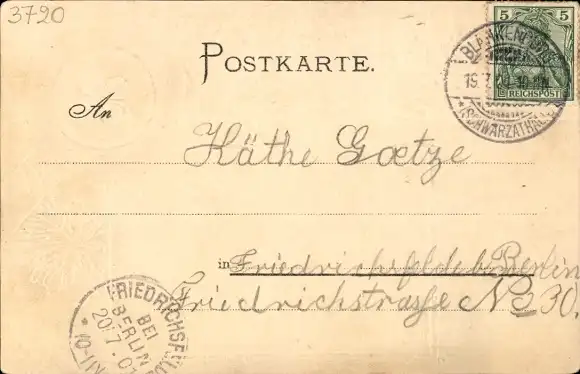 3720
5 5
REICHSPOST
BLANKENBURG
19.7.
(SCHWARZATHAL)
POSTKARTE.
An
Käthe Goetze
in Friedrichsfelde b. Berlin
Friedrichstraße No 30.
FRIEDRICHSFELDE
BEI
BERLIN
20.7.01